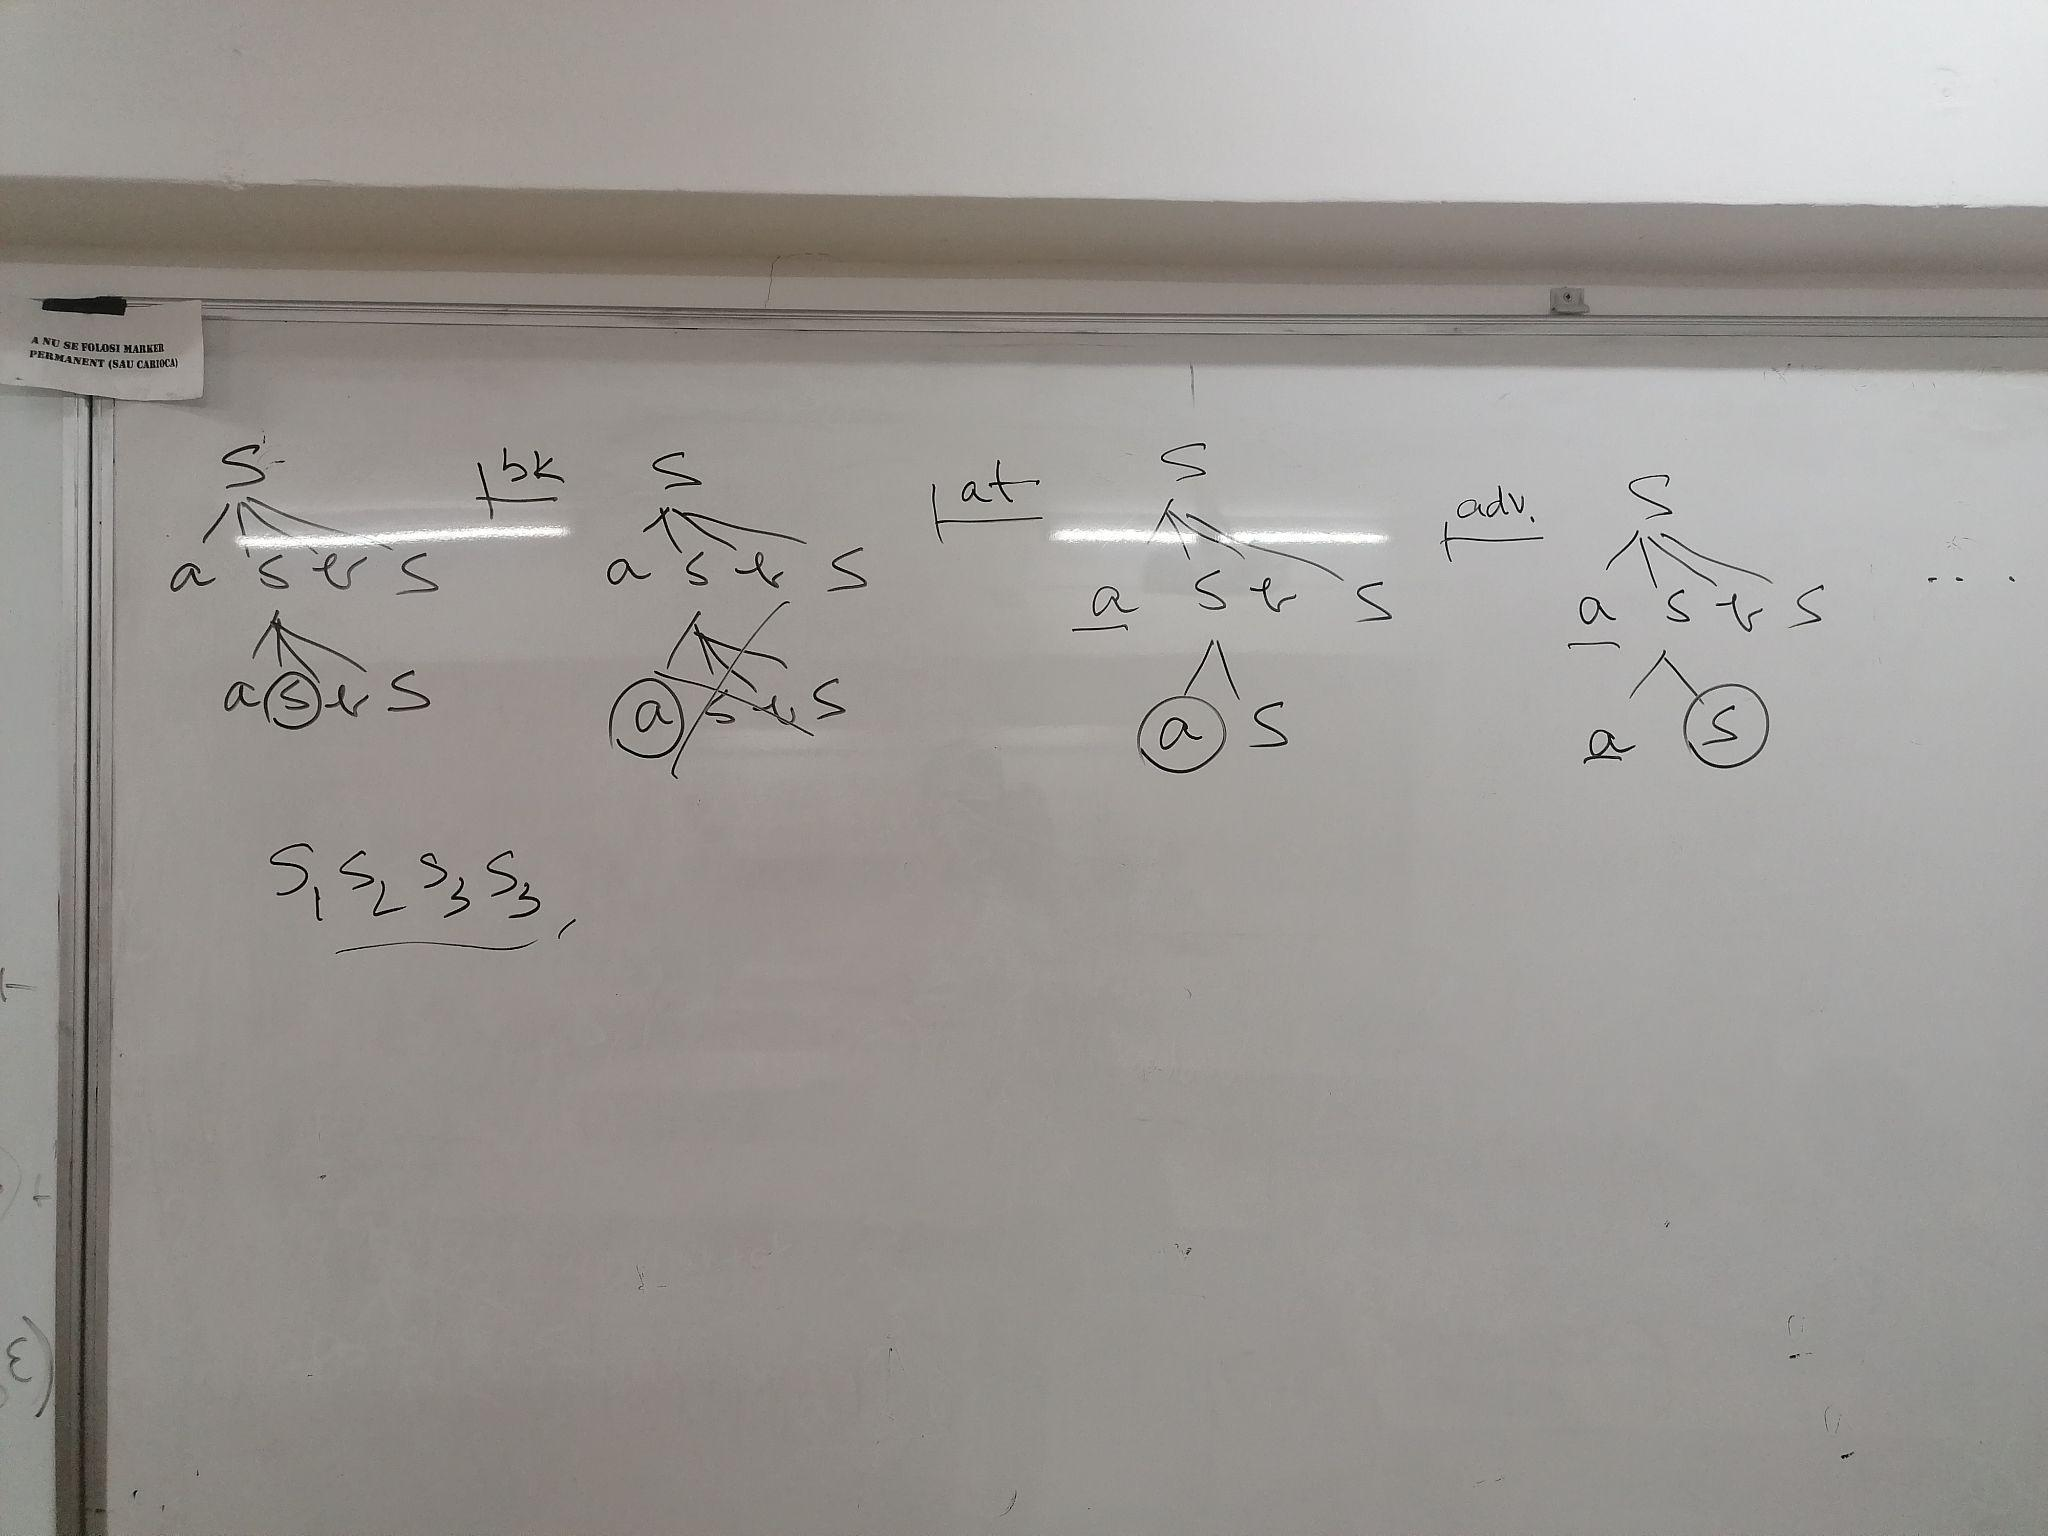 A NU SE FOLOSI MARKER
PERMANENT (SAU CARIOCA)
S bk S at S adv. S
a S b S a S b S a S b S a S b S ...
a S b S a S b S a S a S
S1 S2 S3 S3,